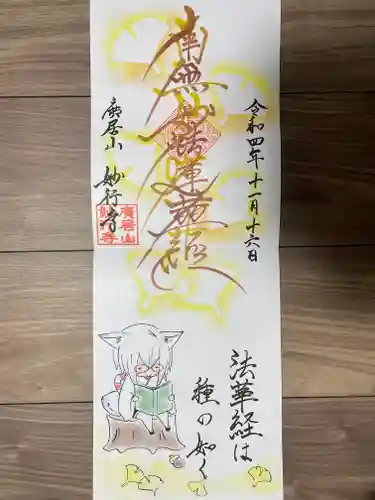 令和四年十一月十六日
南無妙法蓮華経
廣居山 妙行寺
廣居山
妙行寺
法華経は
種の如く